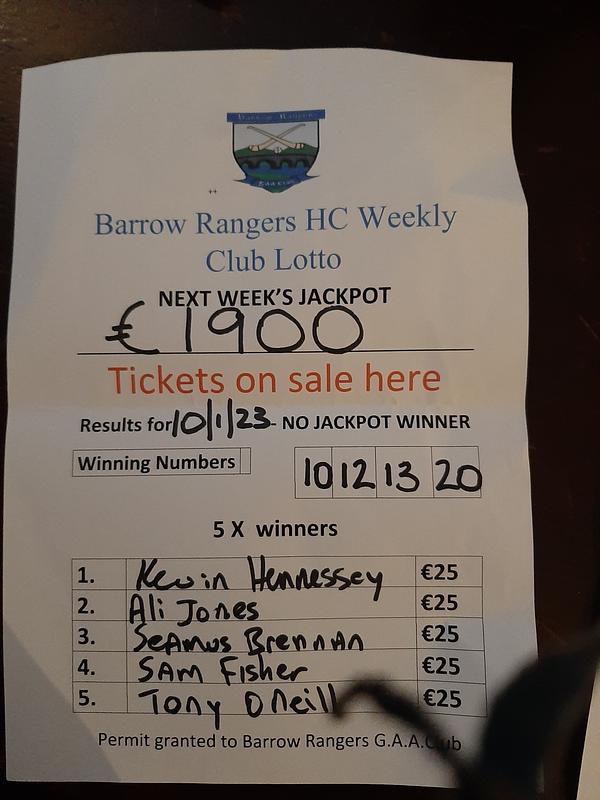 Barrow Rangers
GAA Club
++
Barrow Rangers HC Weekly
Club Lotto
NEXT WEEK'S JACKPOT
€1900
Tickets on sale here
Results for 10/1/23- NO JACKPOT WINNER
Winning Numbers 10 12 13 20
5 X winners
1. Kevin Hennessey €25
2. Ali Jones €25
3. SEAMUS BRENNAN €25
4. SAM FISHER €25
5. Tony O Neill €25
Permit granted to Barrow Rangers G.A.A.Club